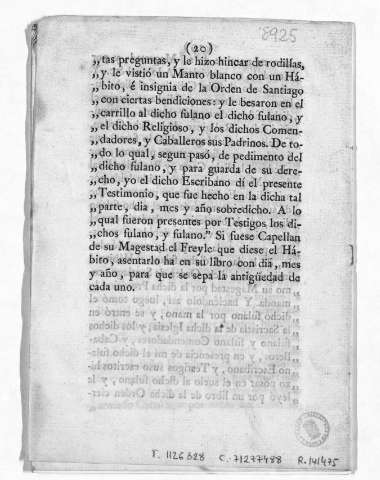 8925
(20)
„tas preguntas, y le hizo hincar de rodillas,
„y le vistió un Manto blanco con un Há-
„bito, é insignia de la Orden de Santiago
„con ciertas bendiciones: y le besaron en el
„carrillo al dicho fulano el dicho fulano, y
„el dicho Religioso, y los dichos Comen-
„dadores, y Caballeros sus Padrinos. De to-
„do lo qual, segun pasó, de pedimento del
„dicho fulano, y para guarda de su dere-
„cho, yo el dicho Escribano dí el presente
„Testimonio, que fue hecho en la dicha tal
„parte, dia, mes y año sobredicho. A lo
„qual fueron presentes por Testigos los di-
„chos fulano, y fulano.” Si fuese Capellan
de su Magestad el Freyle que diese el Há-
bito, asentarlo ha en su libro con dia, mes
y año, para que se sepa la antigüedad de
cada uno.
T. 1126328 C. 71277488 R. 141475